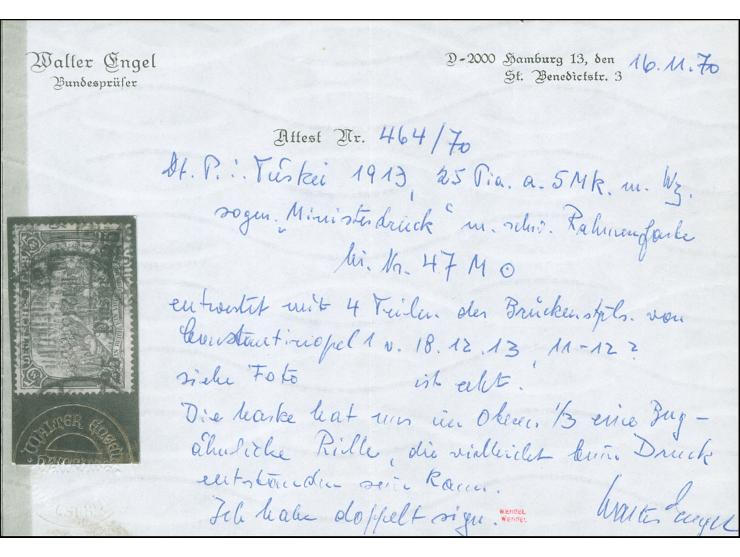 Walter Engel
Bundesprüfer
D-2000 Hamburg 13, den 16.11.70
St. Benedictstr. 3
Attest Nr. 464/70
Dt. P. i. Türkei 1913, 25 Pia. a. 5 Mk. m. Wz.
sogen. „Ministerdruck“ m. schw. Rahmenfarbe
Mi. Nr. 47 M ⊙
entwertet mit 4 Teilen des Brückenstpls. von
Constantinopel 1 v. 18.12.13, 11-12?
siehe Foto ist echt.
Die Marke hat nur im oberen 1/3 eine Bug-
ähnliche Rille, die vielleicht beim Druck
entstanden sein kann.
Ich habe doppelt sign.
WENDEL
WENDEL
Walter Engel
WALTER ENGEL